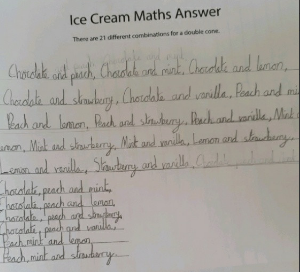 Ice Cream Maths Answer
There are 21 different combinations for a double cone.
Chocolate and peach, Chocolate and mint, Chocolate and lemon,
Chocolate and strawberry, Chocolate and vanilla, Peach and mi
Peach and lemon, Peach and strawberry, Peach and vanilla, Mint
emon, Mint and strawberry, Mint and vanilla, Lemon and strawberry,
Lemon and vanilla, Strawberry and vanilla
Chocolate, peach and mint,
Chocolate, peach and lemon,
Chocolate, peach and strawberry,
Chocolate, peach and vanilla,
Peach, mint and lemon,
Peach, mint and strawberry